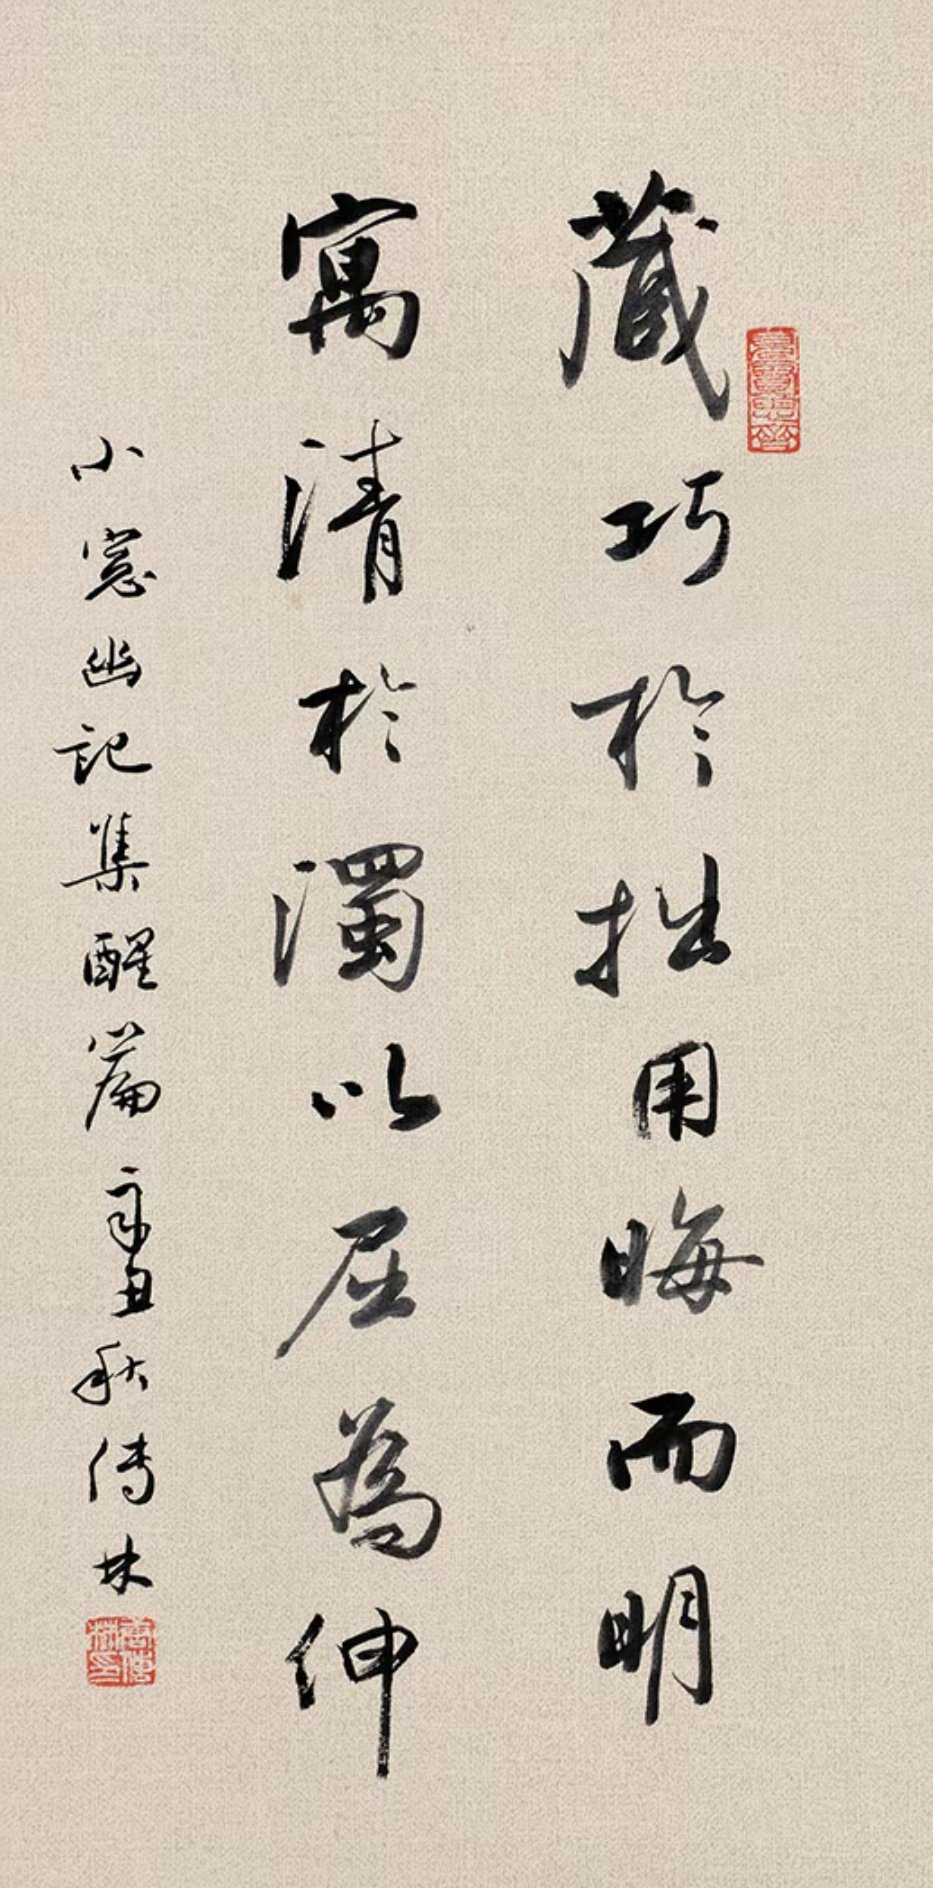 藏巧於拙用晦而明
寓清於濁以屈為伸
小窓幽記集醒篇辛丑秋傳林